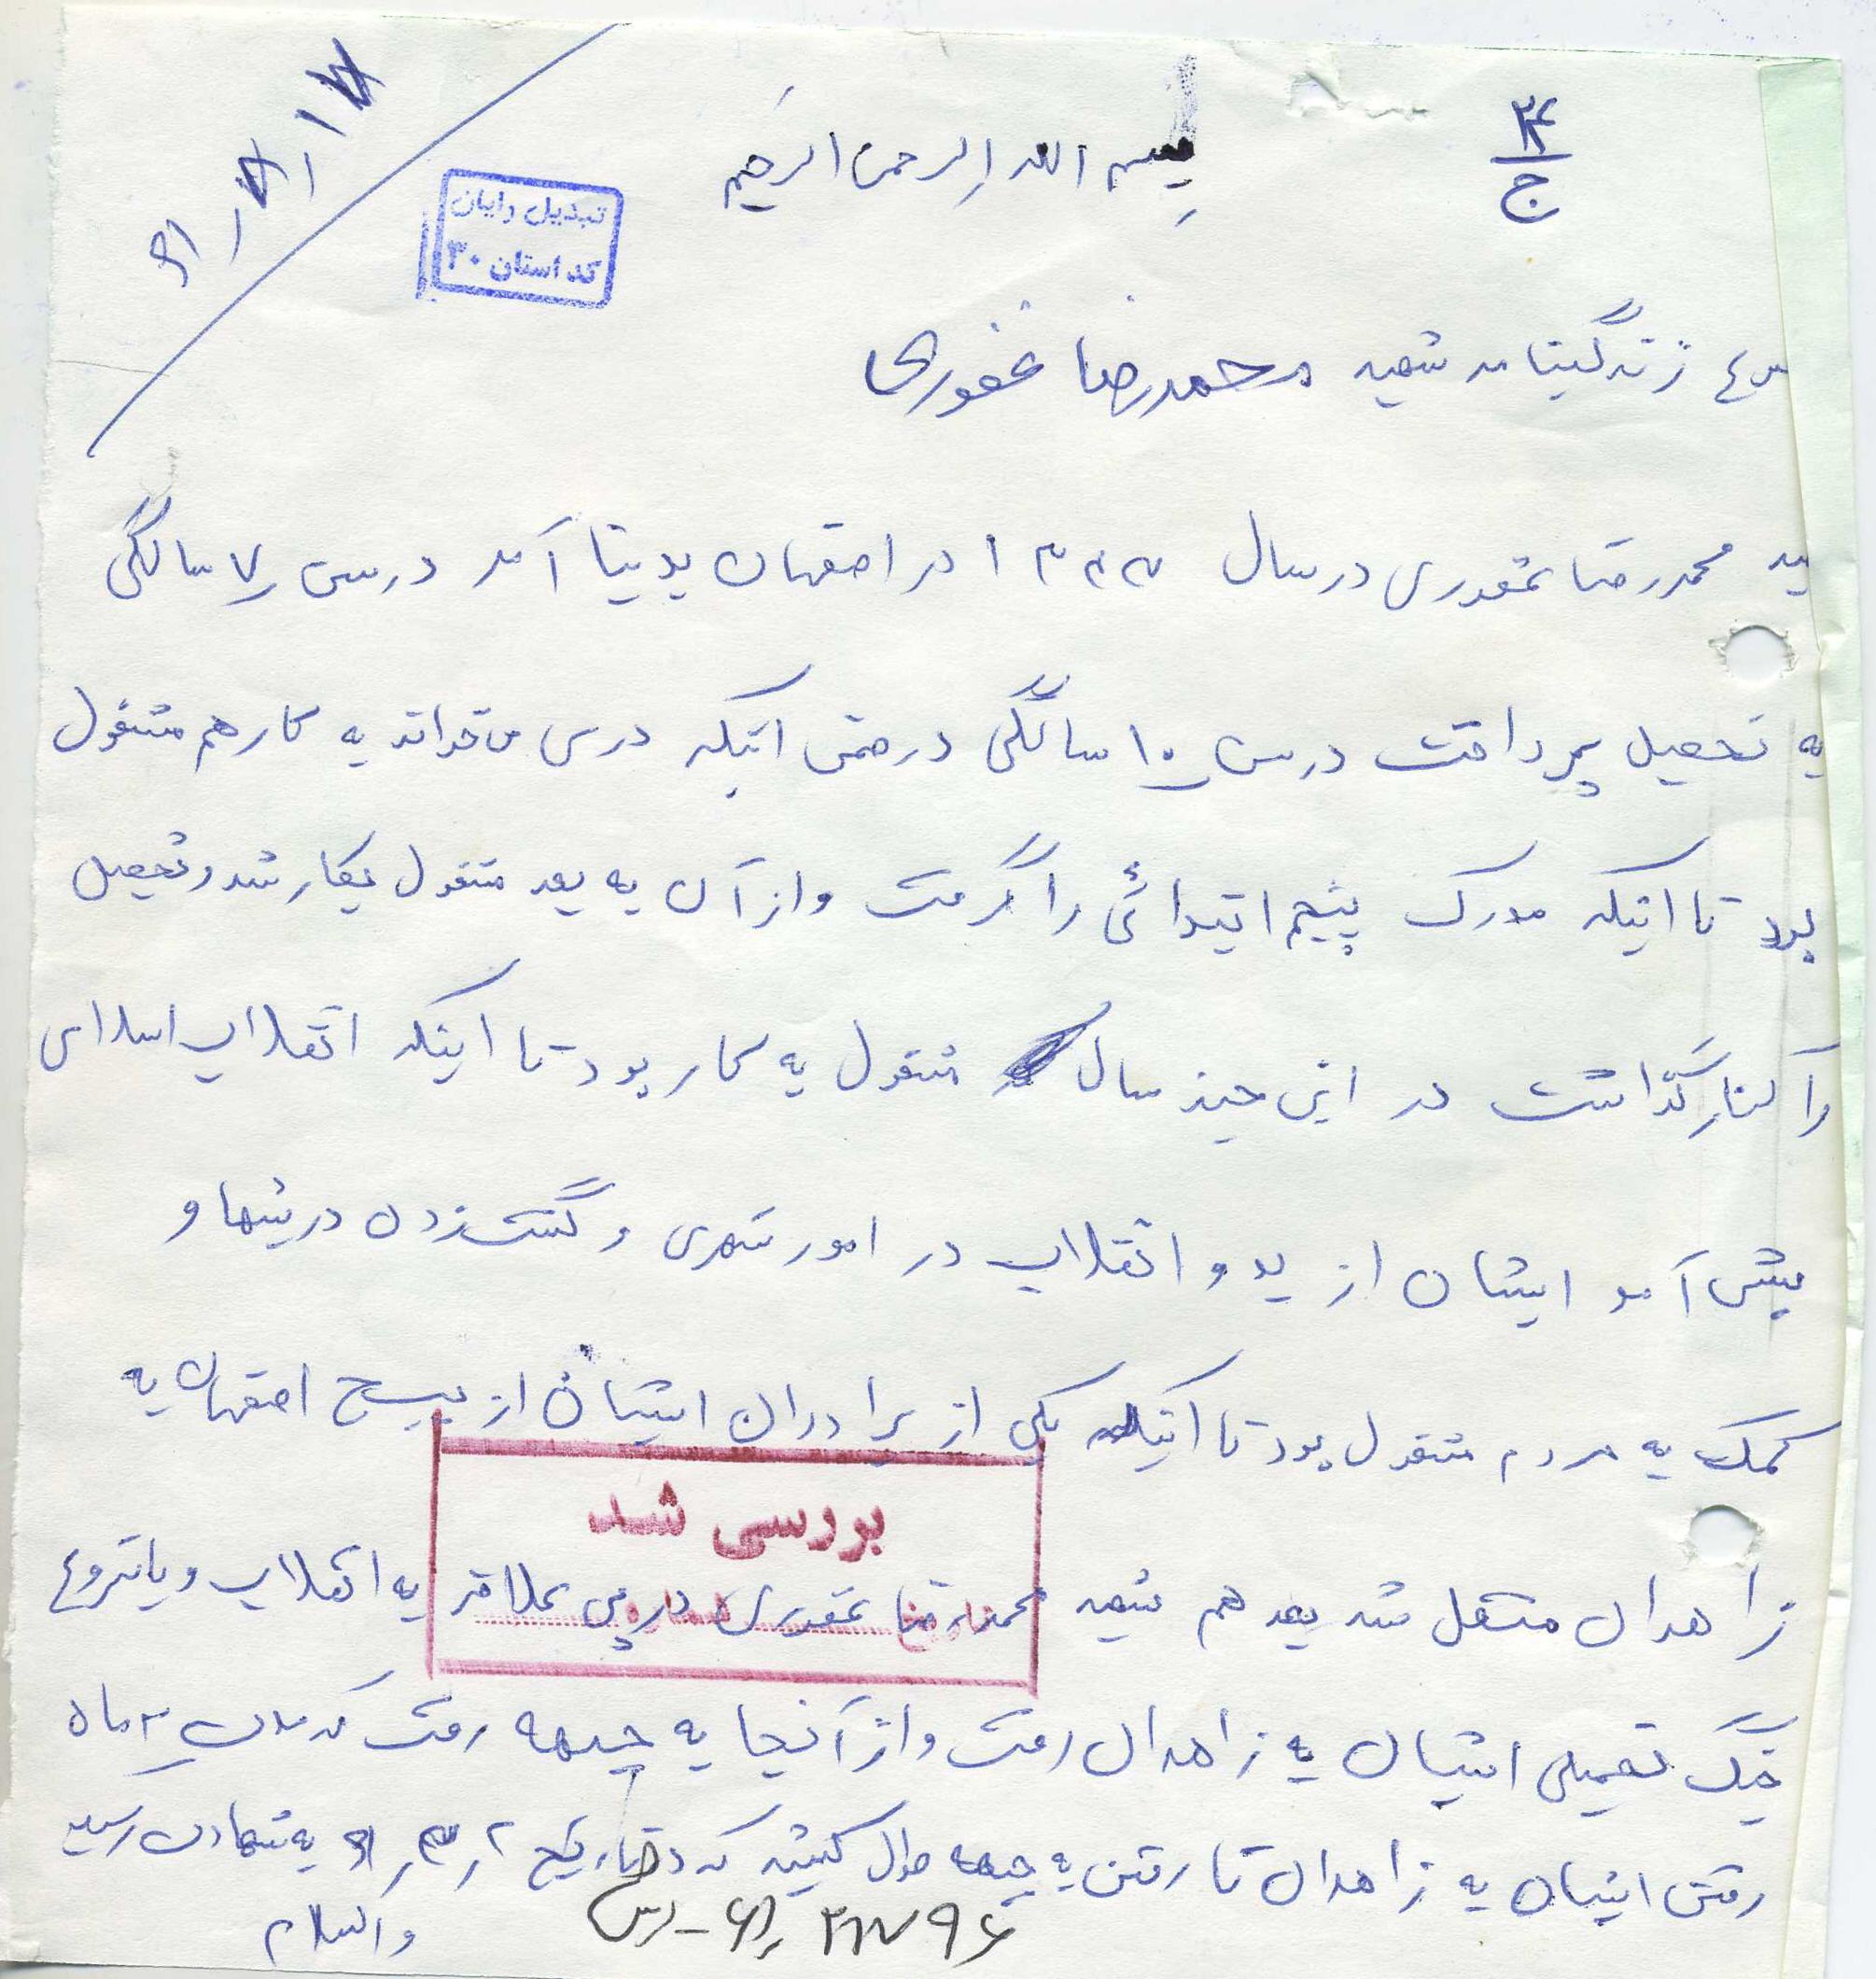 بسم الله الرحمن الرحیم
تبدیل رایان
کد استان ۳۰
زندگینامه شهید محمدرضا غفوری
محمدرضا غفوری در سال در اصفهان بدنیا آمد در سن ۷ سالگی
به تحصیل پرداخت در سن ۱۰ سالگی در ضمن اینکه درس می خواند به کار هم مشغول
بود تا اینکه مدرک پنجم ابتدائی را گرفت و از آن به بعد مشغول بکار شد و تحصیل
را کنار گذاشت در این چند سال مشغول به کار بود تا اینکه انقلاب اسلامی
پیش آمد ایشان از بدو انقلاب در امور شهری و گشت زدن در شبها و
کمک به مردم مشغول بود تا اینکه یکی از برادران ایشان از بسیج اصفهان به
زاهدان منتقل شد بعد هم شهید محمدرضا غفوری در پی علاقه به انقلاب و با شروع
بررسی شد
جنگ تحمیلی ایشان به زاهدان رفت و از آنجا به جبهه رفت که مدت ۲ ماه
رفتن ایشان به زاهدان تا رفتن به جبهه طول کشید که در تاریخ به شهادت رسید
والسلام